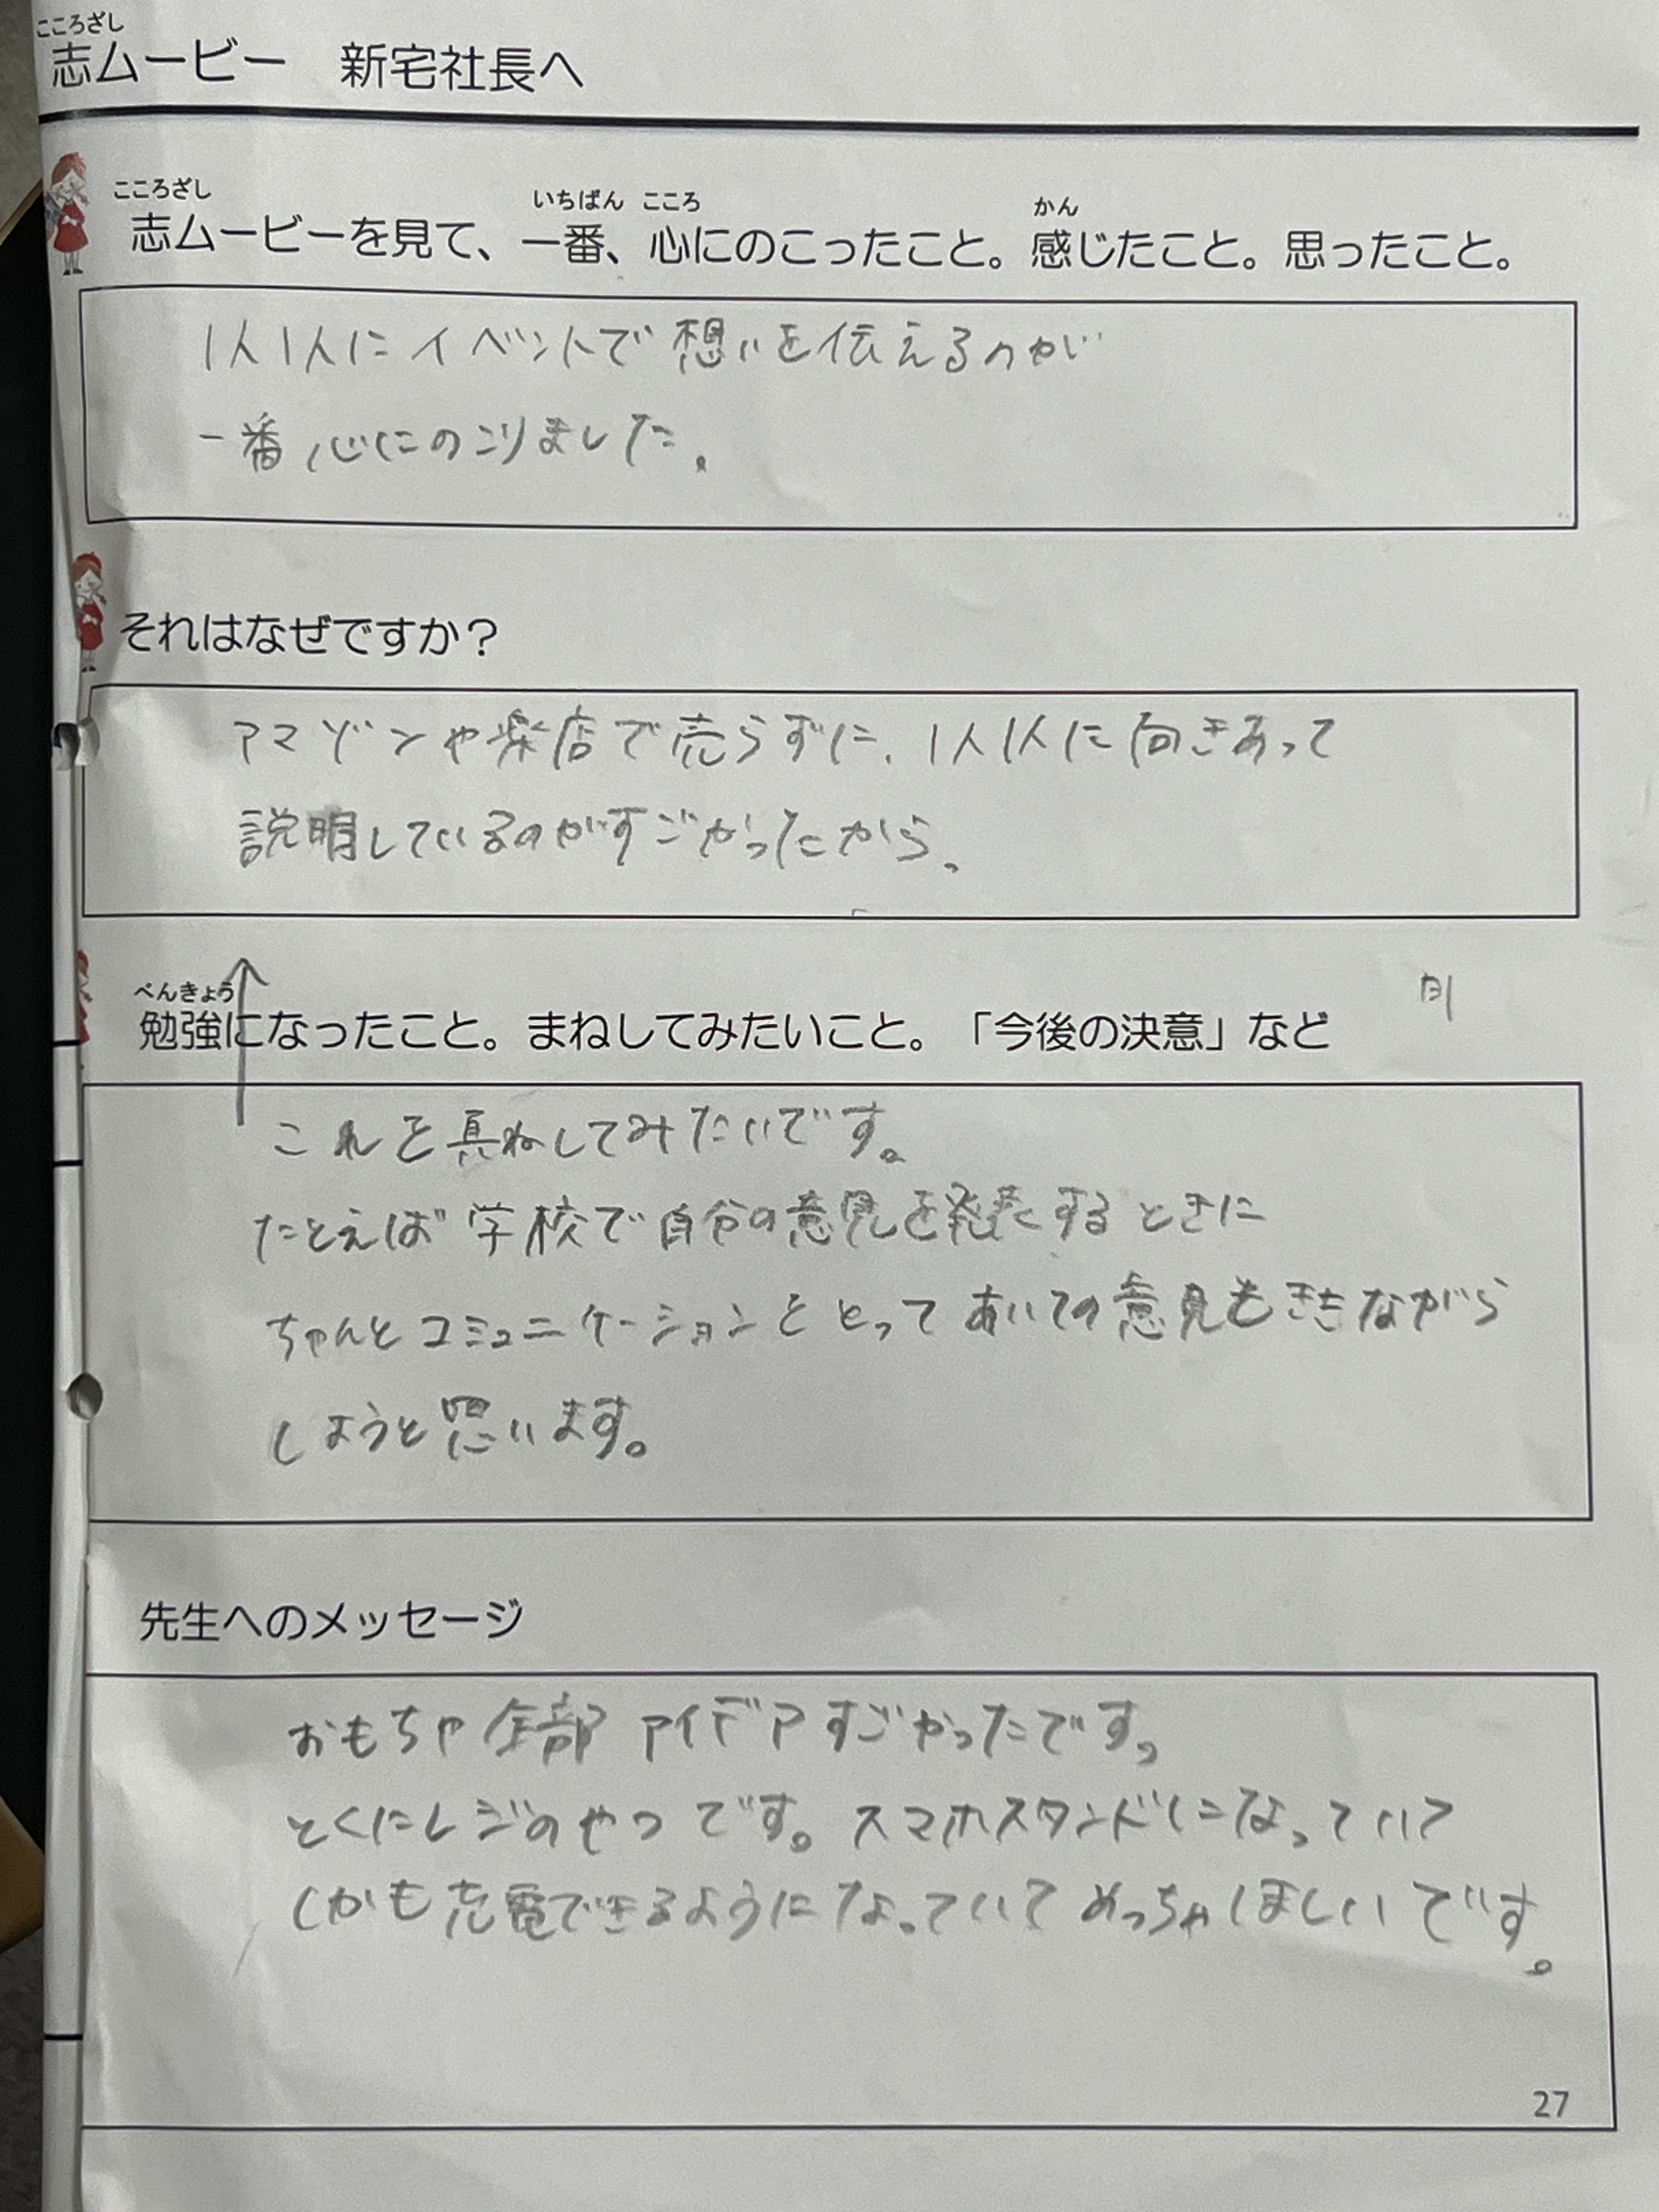 こころざし
志ムービー　新宅社長へ
こころざし いちばん こころ かん
志ムービーを見て、一番、心にのこったこと。感じたこと。思ったこと。
1人1人にイベントで想いを伝えるのが
一番心にのこりました。
それはなぜですか？
アマゾンや楽店で売らずに、1人1人に向きあって
説明しているのがすごかったから。
べんきょう
勉強になったこと。まねしてみたいこと。「今後の決意」など
これを真ねしてみたいです。
たとえば学校で自分の意見を発表するときに
ちゃんとコミュニケーションをとってあいての意見もききながら
しようと思います。
先生へのメッセージ
おもちゃ全部アイデアすごかったです。
とくにレジのやつです。スマホスタンドになっていて
しかも充電できるようになっていてめっちゃほしいです。
27